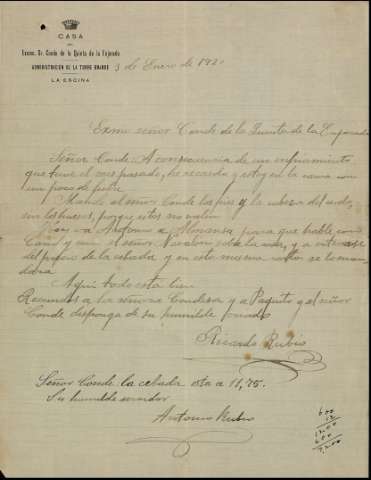 CASA
DEL
Excmo. Sr. Conde de la Quinta de la Enjarada
ADMINISTRACION DE LA TORRE
LA ENCINA
3 de Enero de 192
Exmo señor Conde de la Quinta de la Enjarada
Señor Conde: A consecuencia de un enfriamiento
que tuve el mes pasado, he recaido y estoy en la cama con
un poco de fiebre
Mando al señor Conde los pies y la cabeza del
los huesos, porque estos no
va Antonio a Plasencia para que hable con
y con el señor sobre la y a enterarse
del precio de la cebada y en este mismo se lo man-
dara
Aqui todo esta bien
Recuerdos a la señora Condesa y a Paquito y el señor
Conde disponga de su humilde criado
Ricardo Rubio
Señor Conde la cebada esta a 11,75.
Su humilde servidor
Antonio Rubio
600
12
1200
600
7200